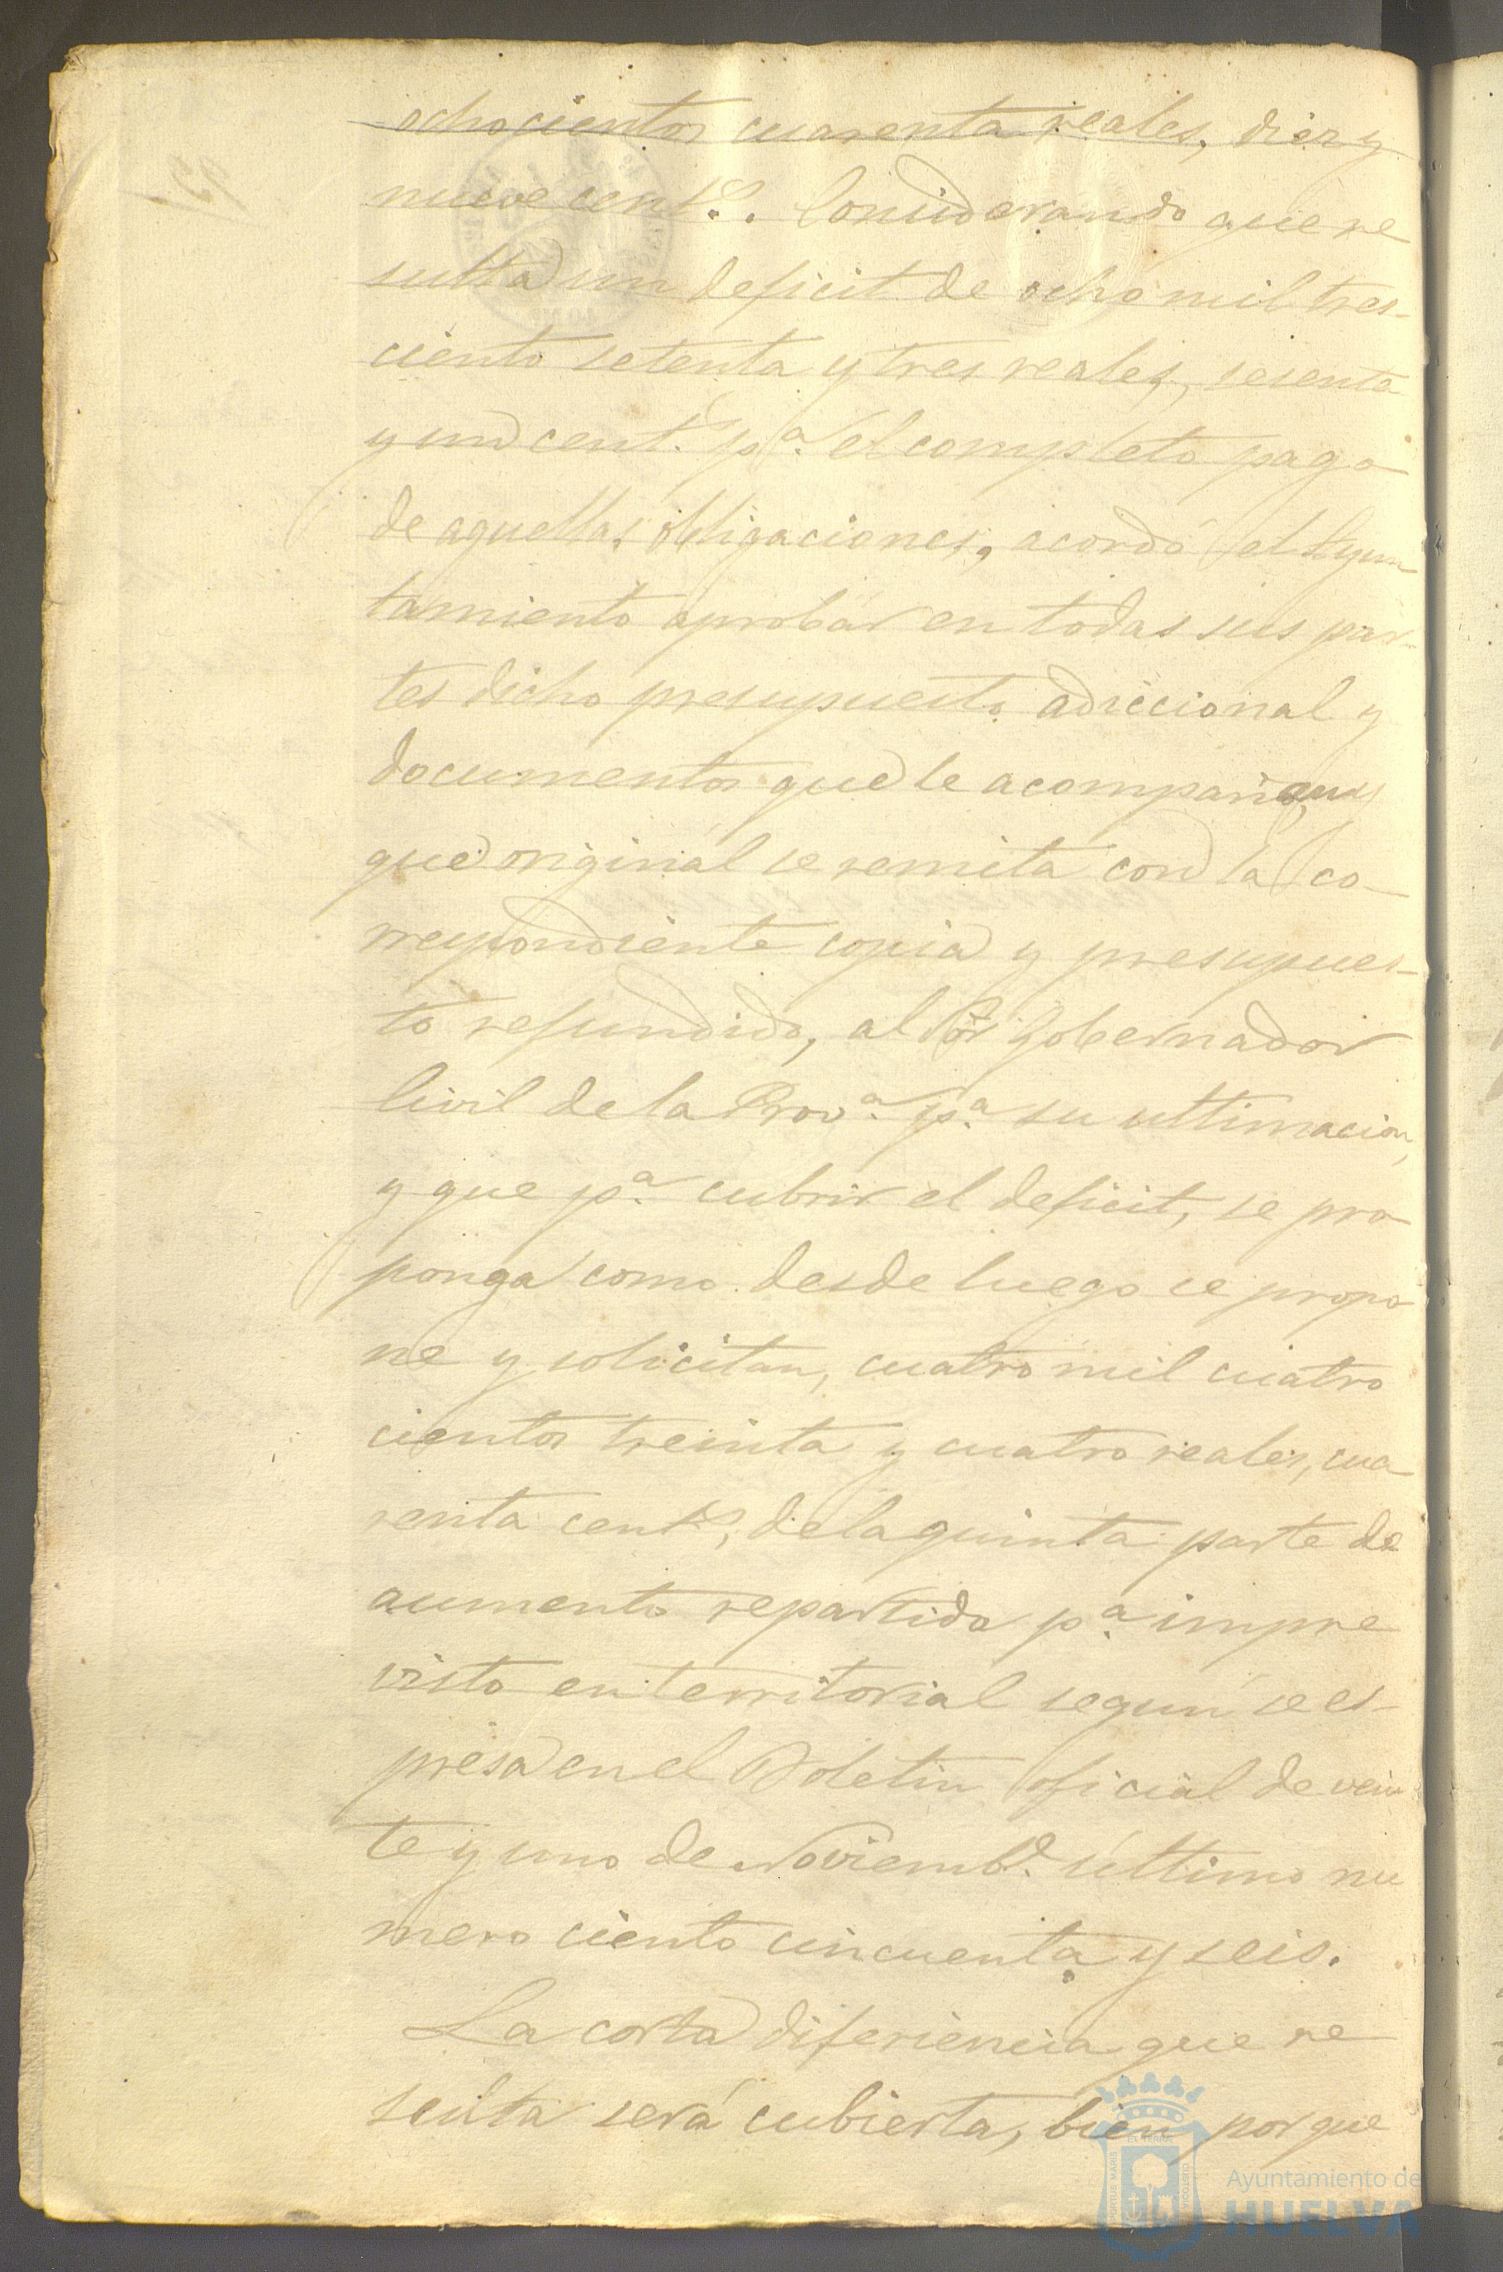 ochocientos cuarenta reales, diez y
nueve cent.s. Considerando que re
sulta un deficit de ocho mil tres-
ciento setenta y tres reales, sesenta
y un cent.s p.a el completo pago
de aquellas obligaciones, acordó el Ayun
tamiento aprobar en todas sus par-
tes dicho presupuesto adiccional y
documentos que le acompañan y
que original se remita con la co-
rrespondiente copia y presupues-
to refundido, al Sor Gobernador
Civil de la Prov.a p.a su ultimacion,
y que p.a cubrir el deficit, se pro
ponga como desde luego se propo
ne y solicitan, cuatro mil cuatro
cientos treinta y cuatro reales, cua
renta cent.s, de la quinta parte de
aumento repartido p.a impre
visto en territorial segun se es-
presa en el Boletin oficial de vein
te y uno de Noviemb.e último nu
mero ciento cincuenta y seis.
La corta diferiencia que re
sulta será cubierta, bien porque
Ayuntamiento de
HUELVA